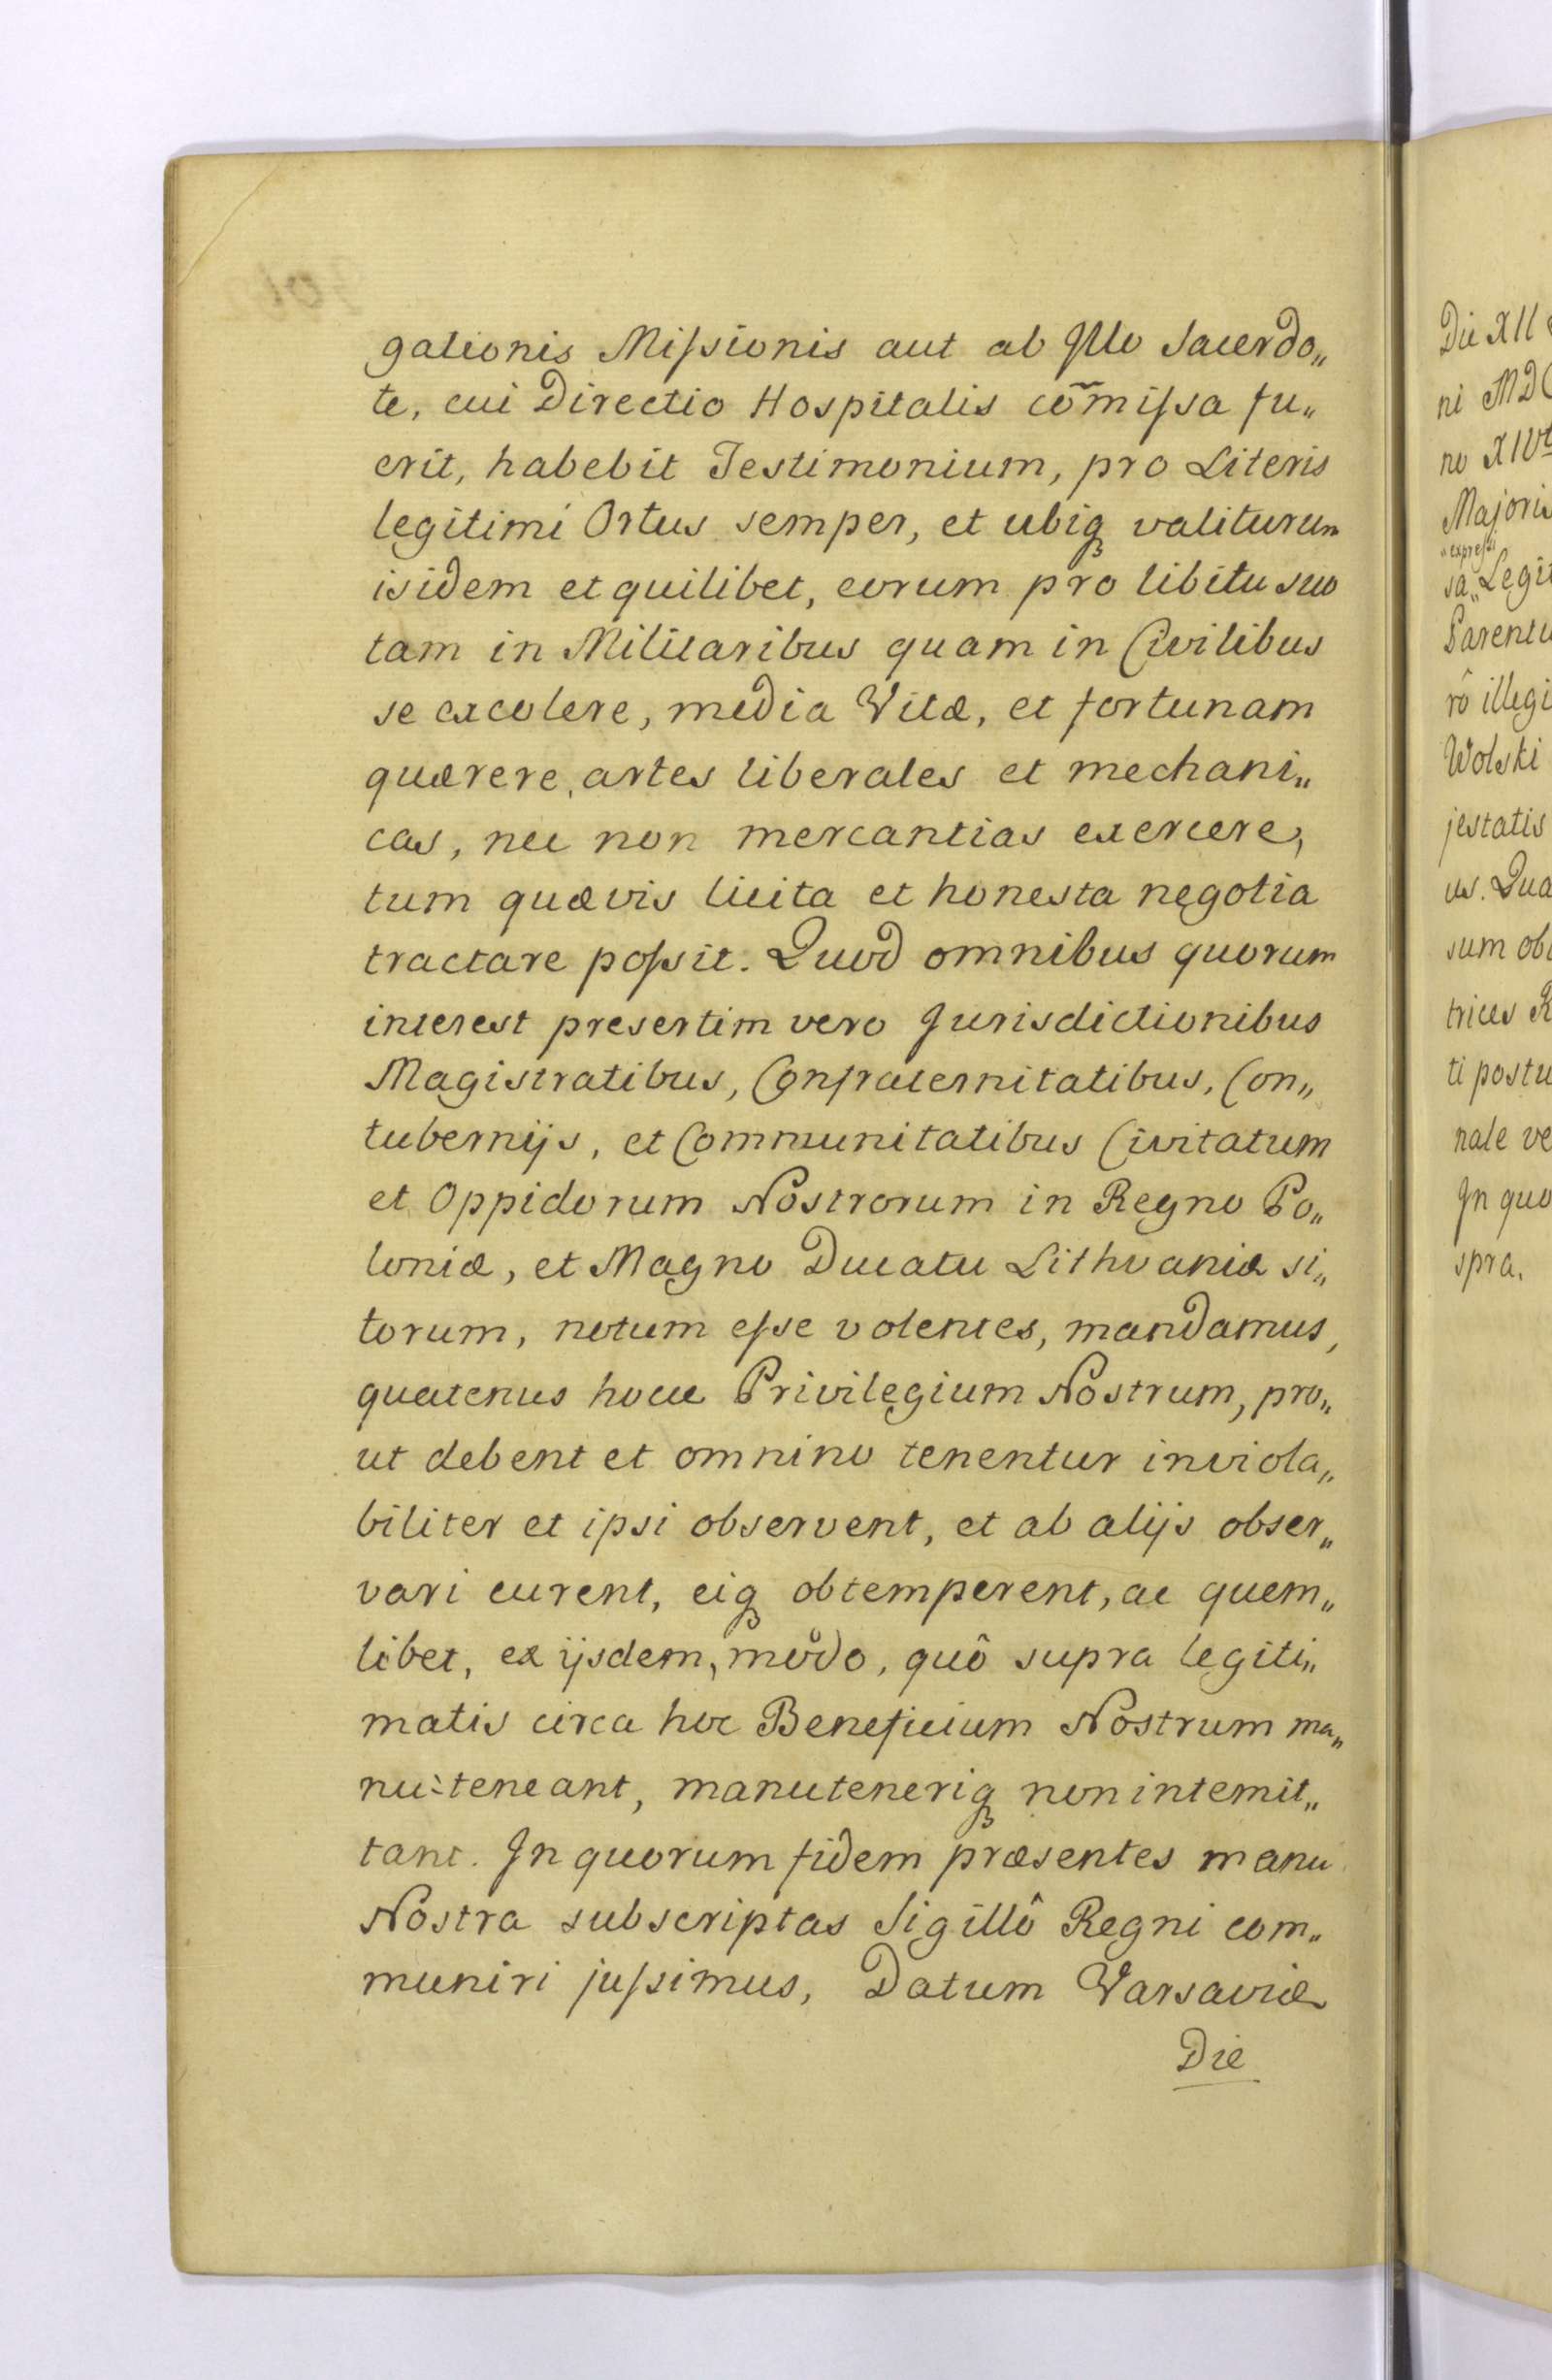 gationis Miſsionis aut ab Illo Sacerdo„
te, cui Directio Hospitalis com̃iſsa fu„
erit, habebit Testimonium, pro Literis
legitimi Ortus semper, et ubiq valiturum
isidem et quilibet, eorum pro libitu suo
tam in Militaribus quam in Civilibus
se excolere, media Vitæ, et fortunam
quærere, artes liberales et mechani„
cas, nec non mercantias exercere,
tum quævis licita et honesta negotia
tractare poſsit. Quod omnibus quorum
interest presertim vero Jurisdictionibus
Magistratibus, Confraternitatibus, Con„
tubernijs, et Communitatibus Civitatum
et Oppidorum Nostrorum in Regno Po„
loniæ, et Magno Ducatu Lithvaniæ si„
torum, notum eſse volentes, mandamus,
quatenus hocce Privilegium Nostrum, pro„
ut debent et omnino tenentur inviola„
biliter et ipsi observent, et ab alijs obser„
vari curent, eiq obtemperent, ac quem„
libet, ex ijsdem, modo, quô supra legiti„
matis circa hoc Beneficium Nostrum ma„
nu-teneant, manuteneriq non intemit„
tant. In quorum fidem præsentes manu
Nostra subscriptas Sigillô Regni com„
muniri juſsimus, Datum Varsaviæ
Die
Die XII
ni MDC
no XIVt
Majoris
expreſsi
sa„ Legit
Parentu
rô illegi
Wolski
jestatis
us. Qua
sum ob
trices R
ti postu
nale ve
In quo
spra.